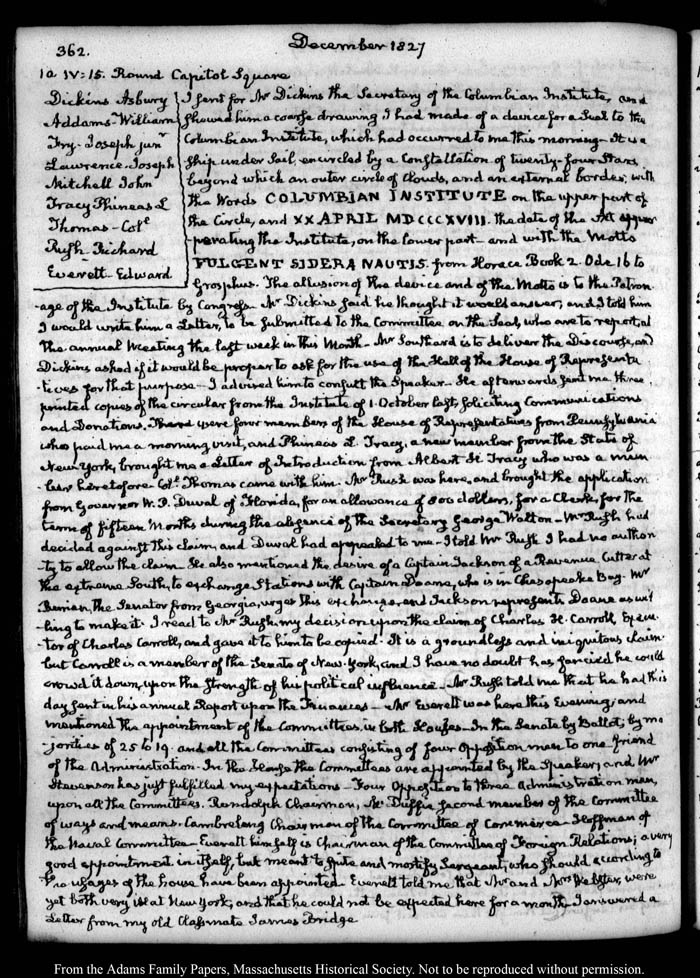 362.
December 1827
10. IV:15. Round Capitol Square
Dickins Asbury
Addams William
Fry Joseph junr
Lawrence Joseph
Mitchell John
Tracy Phineas L
Thomas Colo
Rush Richard
Everett Edward
I sent for Mr Dickins the Secretary of the Columbian Institute, and
showed him a coarse drawing I had made of a device for a Seal to the
Columbian Institute, which had occurred to me this morning. It is a
Ship under Sail, encircled by a Constellation of twenty-four Stars,
beyond which an outer circle of Clouds, and an external border, with
the Words COLUMBIAN INSTITUTE on the upper part of
the Circle, and XX APRIL MDCCCXVIII. the date of the Act
the Institute, on the lower part—and with the Motto
FULGENT SIDERA NAUTIS. from Horace Book 2. Ode 16 to
Grosphus. The allusion of the device and of the Motto is to the Patron-
-age of the Institute by Congress. Mr Dickins said he thought it would answer, and I told him
I would write him a Letter, to be submitted to the Committee on the Seal, who are to report at
the annual Meeting the last week in this Month—Mr Southard is to deliver the Discourse, and
Dickins asked if it would be proper to ask for the use of the Hall of the House of Representa-
-tives for that purpose—I advised him to consult the Speaker—He afterwards sent me three
printed copies of the circular from the Institute of 1. October last, soliciting Communications
and Donations. There were four members of the House of Representatives from Pennsylvania
who paid me a morning visit, and Phineas L. Tracy, a new member from the State of
New York, brought me a Letter of Introduction from Albert H. Tracy who was a mem-
-ber heretofore. Colo Thomas came with him. Mr Rush was here, and brought the application
from Governor W. P. Duval of Florida, for an allowance of 800 dollars, for a Clerk, for the
term of fifteen Months during the absence of the Secretary George Walton—Mr Rush had
decided against this claim, and Duval had appealed to me—I told Mr Rush I had no author-
-ity to allow the claim. He also mentioned the desire of a Captain Jackson of a Revenue Cutter at
the extreme South, to exchange Stations with Captain Doane, who is in Chesapeake Bay. Mr
Berrien, the Senator from Georgia, urges this exchange, and Jackson represents Doane as wil-
-ling to make it. I read to Mr Rush, my decision upon the claim of Charles H. Carroll, Execu-
-tor of Charles Carroll, and gave it to him to be copied. It is a groundless and iniquitous claim
but Carroll is a member of the Senate of New-York, and I have no doubt has fancied he could
crowd it down, upon the strength of his political influence—Mr Rush told me that he had this
day sent in his annual Report upon the Finances—Mr Everett was here this Evening; and
mentioned the appointment of the Committees in both Houses—In the Senate by Ballot, by ma-
-jorities of 25 to 19. and all the Committees consisting of four Opposition men to one friend
of the Administration. In the House the Committees are appointed by the Speaker, and Mr
Stevenson has just fulfilled my expectations—Four Opposition to three Administration men,
upon all the Committees. Randolph Chairman, McDuffie second member of the Committee
of ways and means. Cambreleng Chairman of the Committee of Commerce—Hoffman of
the Naval Committee—Everett himself is Chairman of the Committee of Foreign Relations; a very
good appointment in itself, but meant to spite and mortify Sergeant, who should according to
the usages of the house have been appointed. Everett told me that Mr and Mrs Webster, were
yet both very ill at New York, and that he could not be expected here for a month. I answered a
Letter from my old Classmate James Bridge
From the Adams Family Papers, Massachusetts Historical Society. Not to be reproduced without permission.